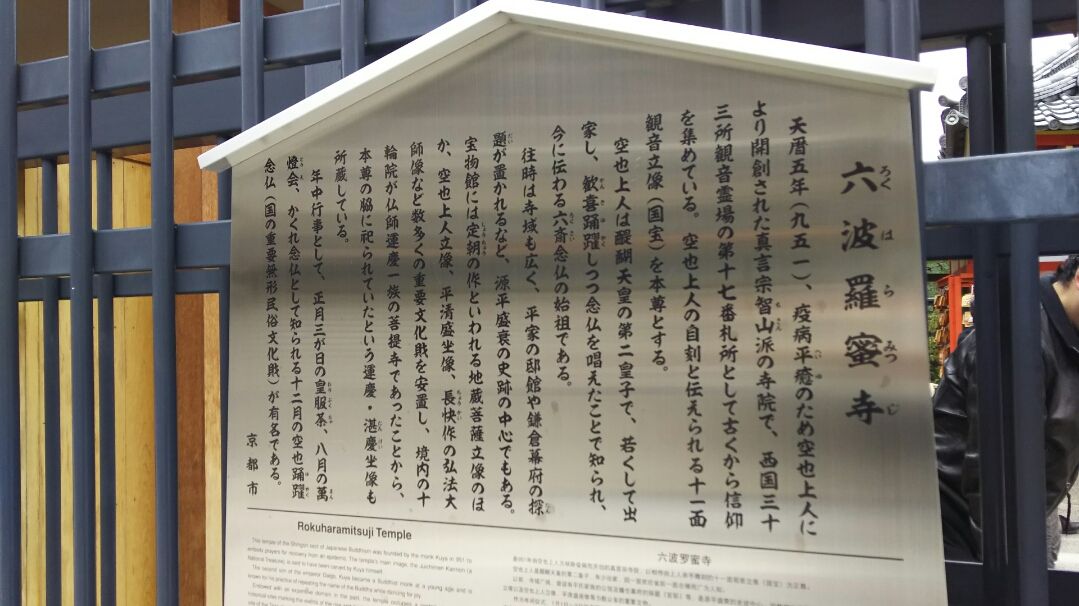 六波羅蜜寺
ろくはらみつじ
天暦五年（九五一）、疫病平癒のため空也上人に
より開創された真言宗智山派の寺院で、西国三十
三所観音霊場の第十七番札所として古くから信仰
を集めている。空也上人の自刻と伝えられる十一面
観音立像（国宝）を本尊とする。
空也上人は醍醐天皇の第二皇子で、若くして出
家し、歓喜踊躍しつつ念仏を唱えたことで知られ、
今に伝わる六斎念仏の始祖である。
往時は寺域も広く、平家の邸館や鎌倉幕府の探
題が置かれるなど、源平盛衰の史跡の中心でもある。
宝物館には定朝の作といわれる地蔵菩薩立像のほ
か、空也上人立像、平清盛坐像、長快作の弘法大
師像など数多くの重要文化財を安置し、境内の十
輪院が仏師運慶一族の菩提寺であったことから、
本尊の脇に祀られていたという運慶・湛慶坐像も
所蔵している。
年中行事として、正月三が日の皇服茶、八月の萬
燈会、かくれ念仏として知られる十二月の空也踊躍
念仏（国の重要無形民俗文化財）が有名である。
京都市
Rokuharamitsuji Temple
This temple of the Shingon sect of Japanese Buddhism was founded by the monk Kuya in 951 to
embody prayers for recovery from an epidemic. The temple's main image, the Juichimen Kannon (a
National Treasure), is said to have been carved by Kuya himself.
The second son of the emperor Daigo, Kuya became a Buddhist monk at a young age and is
known for his practice of repeating the name of the Buddha while dancing for joy.
六波罗蜜寺